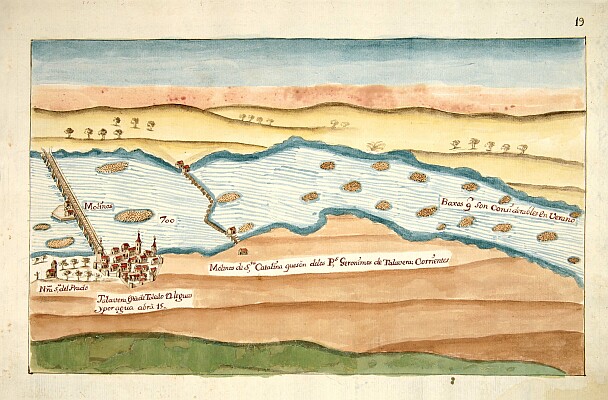 19
Molinos
700
Baxos q̃ son Considerables en Verano
Molinos de S.ta Catalina que són de los P.s Geronimos de Talavera: Corrientes
Nrã S.ra del Prado
Talavera dista de Toledo 12 leguas
y por agua abrà 15.